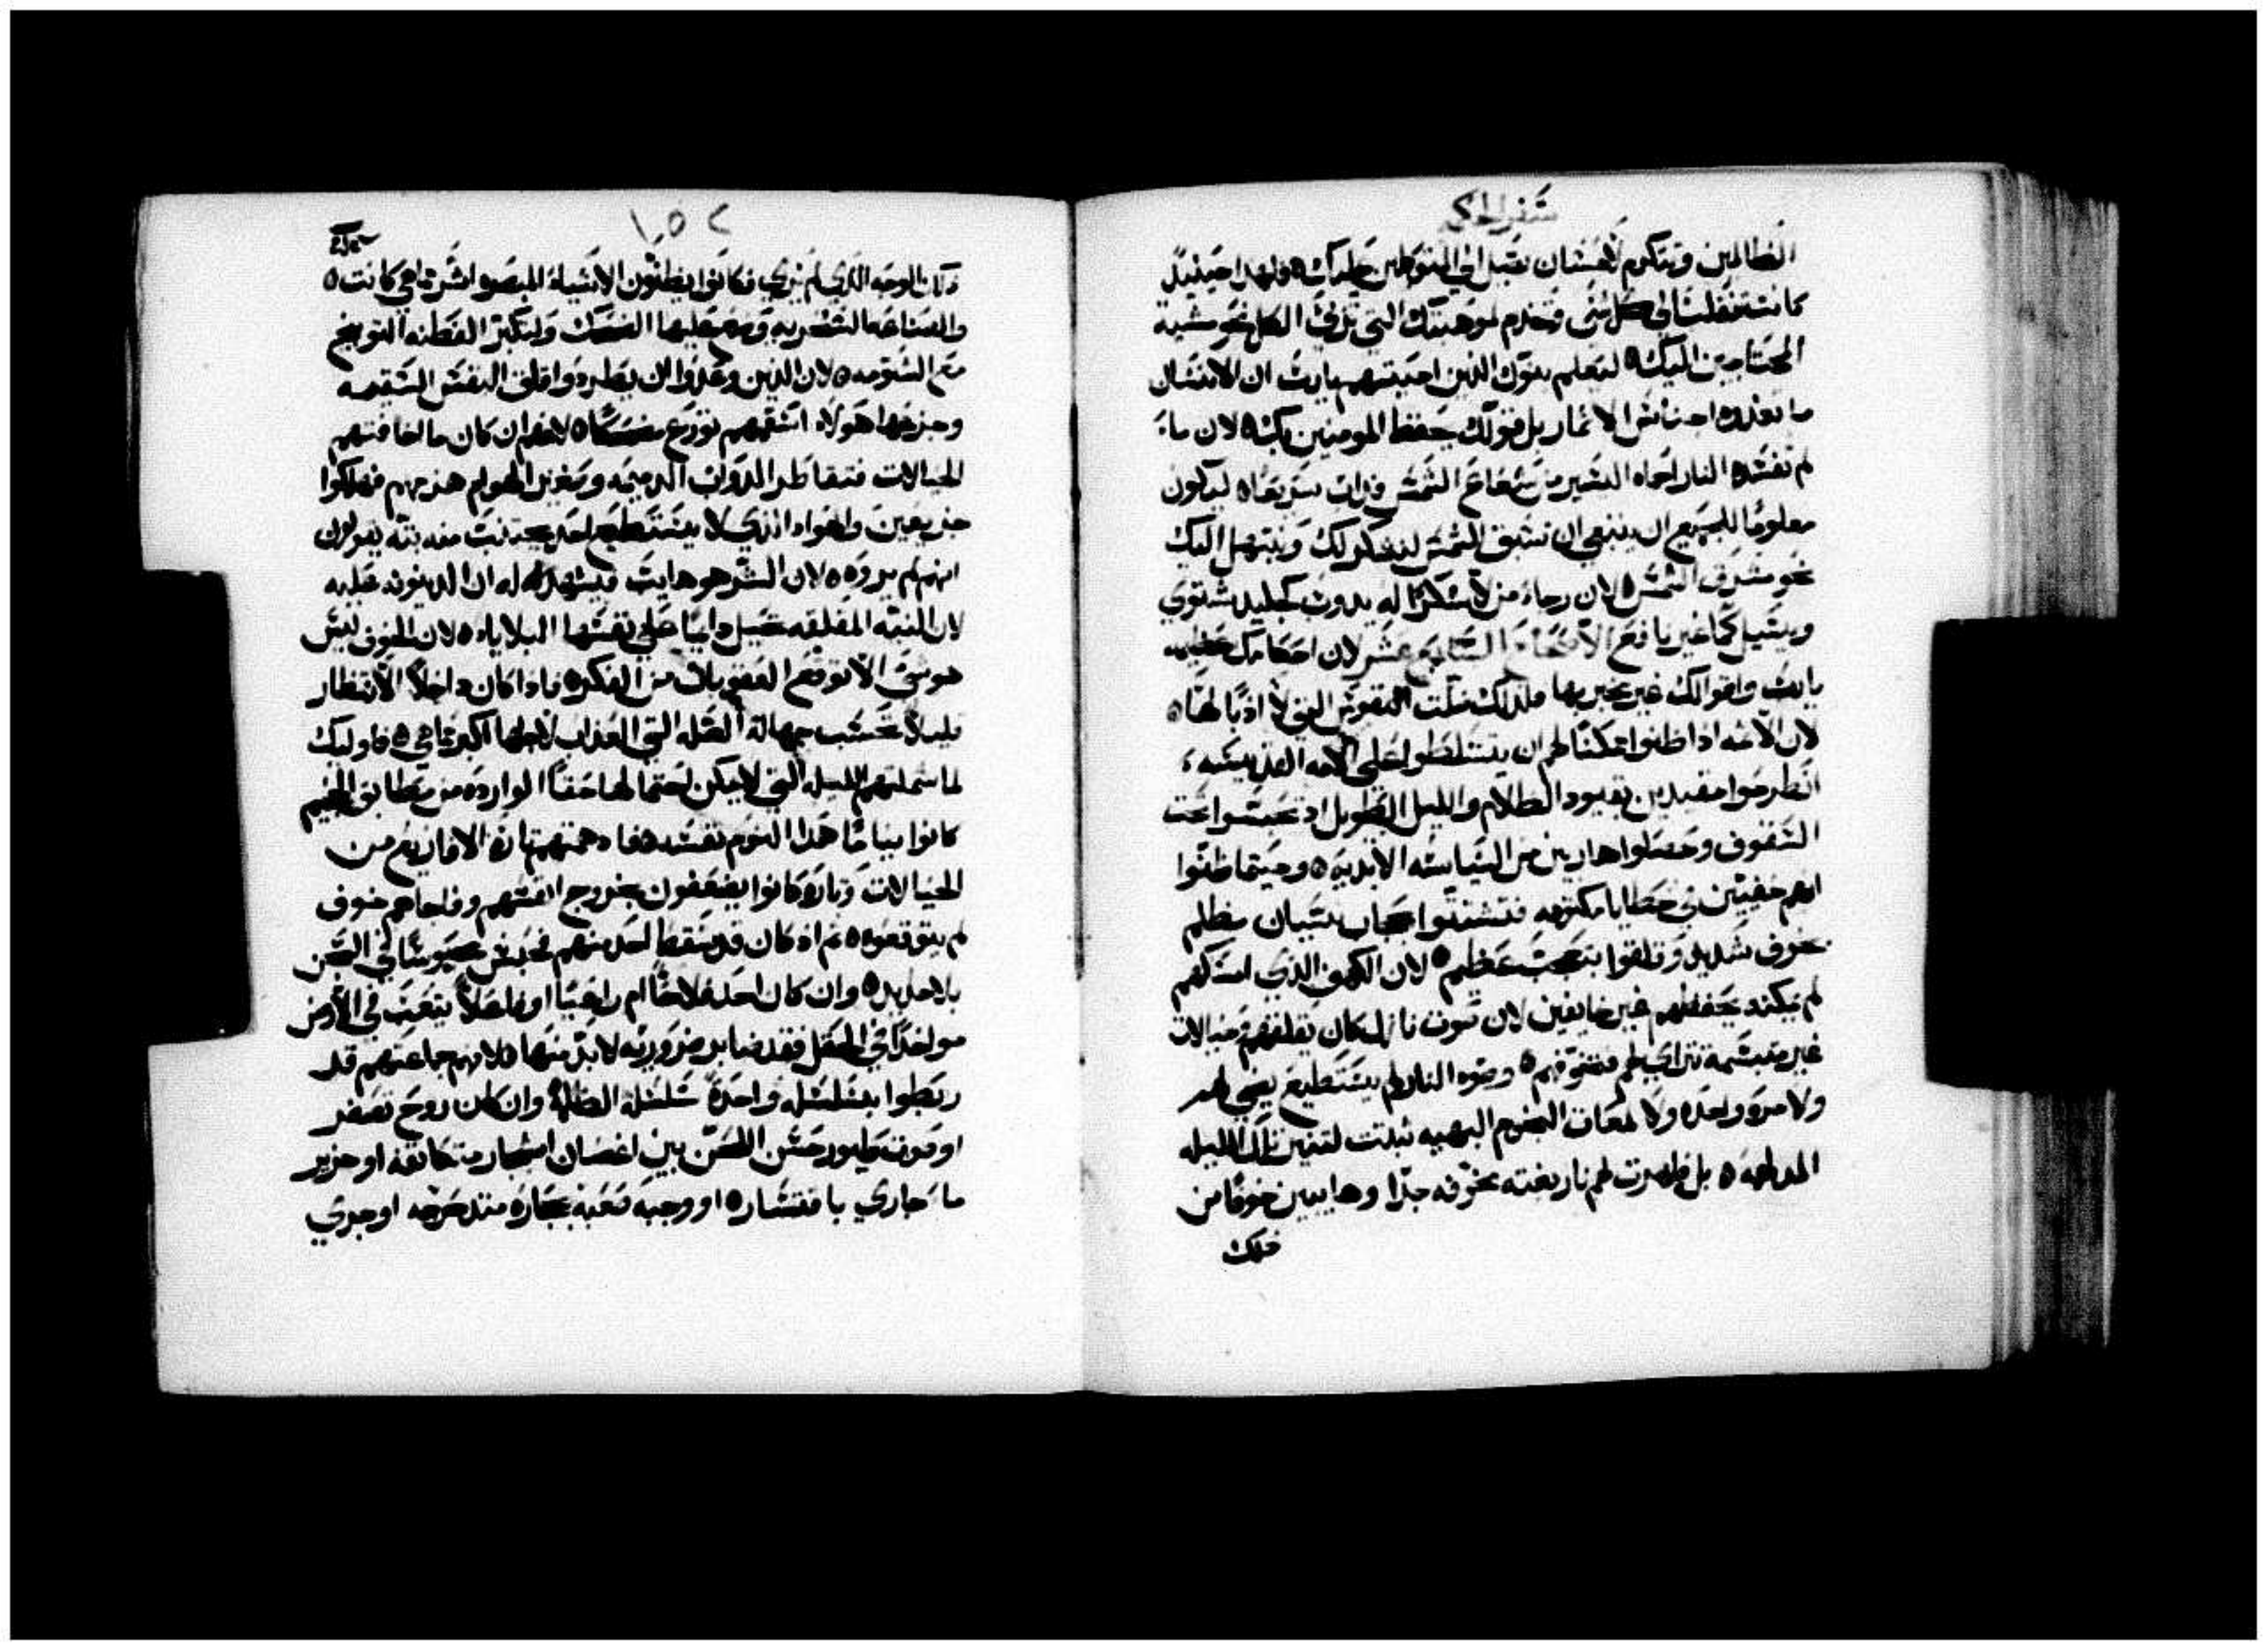 سفر الحكمة
الظالمين وتتكرم لاحسان تقبل الي المتوكلين عليك ولهذا حينيذ
كانت تنتقلت الي كل شي وتخدم لموهبتك التي تربي الكل نحو مشية
المحتاجين اليك لتعلم بنوك الذين احببتهم يارب ان الانسان
ما تغذوه اجناس الاثمار بل قولك يحفظ المومنين بك لان ما
لم تفسده النار احماه اليسير من شعاع الشمس فداب سريعا ليكون
معلوما للجميع ان ينبغي ان نسبق الشمس لنشكر لك ونبتهل اليك
نحو مشرق الشمس لان رجاء من لا شكرا له يدوب كجليد شتوي
ويسيل كما غير نافع الاصحاح السابع عشر لان احكامك عظيمه
يارب واقوالك غير مخبر بها فلذلك ضلت النفوس التي لا ادبا لها
لان الاثمه اذا ظنوا ممكنا لهم ان يتسلطوا علي الامه القديسه
انطرحوا مقيدين بقيود الظلام والليل الطويل اذ حبسوا تحت
السقوف وحصلوا هاربين من السياسه الابديه وحيثما ظنوا
انهم خفيين في خطايا مكتومه فتشتتوا حجاب نسيان مظلم
بخوف شديد وقلقوا بتعجب عظيم لان الكهف الذي امسكهم
لم يمكنه يحفظهم غير خايفين لان صوت نازل كان يقلقهم وخيالات
غير متبسمة تتراي لهم فتخوفهم وضوء النار لم يستطيع يضي لهم
ولا مرة واحده ولا لمعات النجوم البهيه ثبتت لتنير تلك الليله
المدلهمه بل ظهرت لهم نار بغته مخوفه جدا وهايبين خوفا من
ذلك
١٥٢
ذلك الوجه الذي لم يري فكانوا يظنون الاشياء المبصره اشر مما هي كانت
والصناعه السحريه وضع عليها الضحك ولتكبر الفطنه التوبيخ
مع الشتومه لان الذين وعدوا ان يطردوا قلق النفس السقيمه
وجزعها هولاء اسقمهم تورع مضحكا لانهم ان كان ما اخافتهم
الخيالات فتقاطر الدواب الدميمه وصفير الهوام هزمهم فهلكوا
جزيعين والهواء الذي لا يستطيع احد يجتنب منه بته يقولون
انهم لم يروه لان الشر هو هايب فيشهد له ان الدينونه عليه
لان النيه المقلقه تخيل دايما علي نفسها البلايا لان الخوف ليس
هو شي الا توقع العقوبات من الفكر فاذا كان داخلا الانتظار
قليلا تحسب جهالة العله التي العذاب لاجلها اكبر مما هي فاوليك
لما شملتهم الليله التي لا يمكن احتمالها حقا الوارده من مطابق الجحيم
كانوا نياما هذا النوم نفسه فدهمتهم تارة الافازيع من
الخيالات وتارة كانوا يضعفون بخروج انفسهم وفاجاهم خوف
لم يتوقعوه ثم اذ كان قد سقط احد منهم فحبس محبوسا في السجن
بلا حديد وان كان احد فلاحا ام راعيا او فاعلا يتعب في الارض
موخذا في الحقل فقد ضابر ضروريه لا بد منها لانهم جماعتهم قد
ربطوا بسلسله واحدة سلسلة الظلمة وان كان روح تصفر
او صوت طيور حسن اللحن بين اغصان اشجار متكاثفه او خرير
ماء جاري باقتسار او وجبة صعبه بحجارة متدحرجه او جري